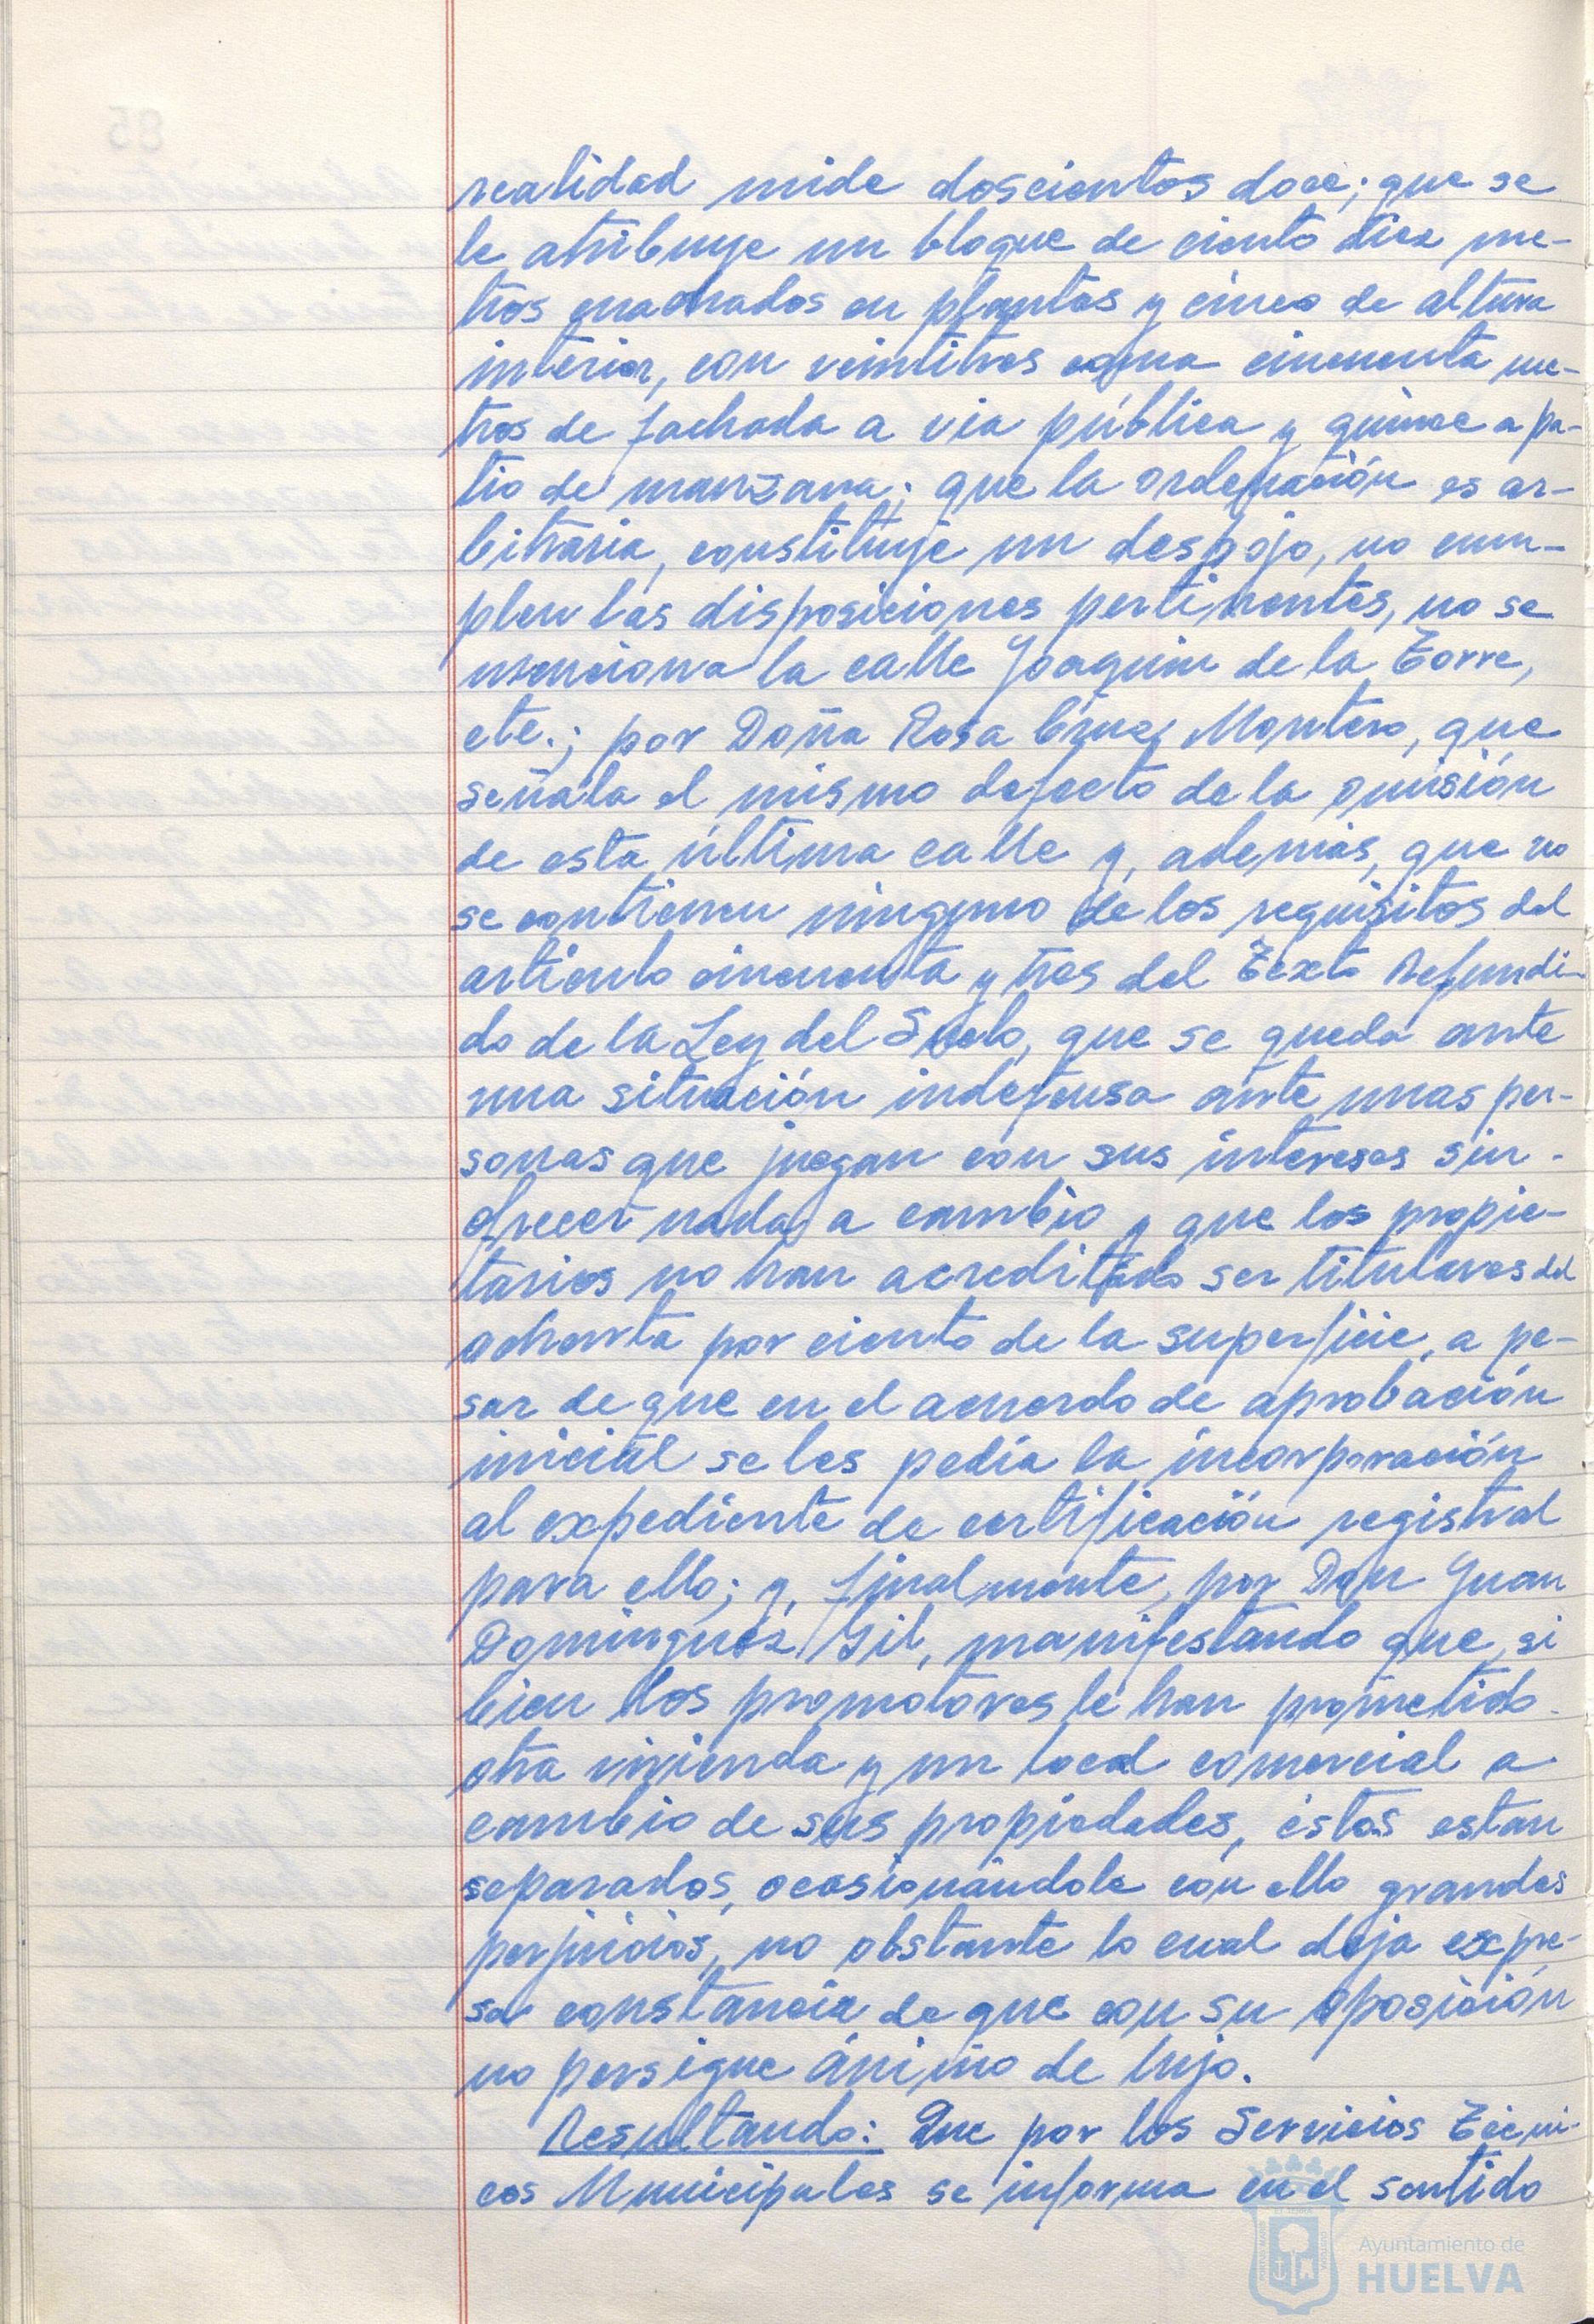 realidad mide doscientos doce; que se
le atribuye un bloque de ciento diez me-
tros cuadrados en plantas y cinco de altura
interior, con veintitres coma cincuenta me-
tros de fachada a via pública y quince a pa-
tio de manzana; que la ordenación es ar-
bitraria, constituye un despojo, no cum-
plen las disposiciones pertinentes, no se
menciona la calle Joaquin de la Torre,
etc.; por Doña Rosa Cruz Montero, que
señala el mismo defecto de la omisión
de esta última calle y, además, que no
se contienen ninguno de los requisitos del
artículo cincuenta y tres del Texto Refundi-
do de la Ley del Suelo, que se queda ante
una situación indefensa ante unas per-
sonas que juegan con sus intereses sin
ofrecer nada a cambio y que los propie-
tarios no han acreditado ser titulares del
ochenta por ciento de la superficie, a pe-
sar de que en el acuerdo de aprobación
inicial se les pedía la incorporación
al expediente de certificación registral
para ello; y, finalmente, por Don Juan
Dominguez Gil, manifestando que, si
bien los promotores le han prometido
otra vivienda y un local comercial a
cambio de sus propiedades, éstos estan
separados, ocasionándole con ello grandes
perjuicios, no obstante lo cual deja expre-
sa constancia de que con su oposición
no persigue ánimo de lujo.
Resultando: Que por los Servicios Técni-
cos Municipales se informa en el sentido
Ayuntamiento de
HUELVA